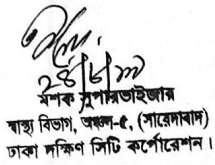 ২৪/৮/২২
মশক সুপারভাইজার
স্বাস্থ্য বিভাগ, অঞ্চল-৫, (সায়েদাবাদ)
ঢাকা দক্ষিণ সিটি কর্পোরেশন।